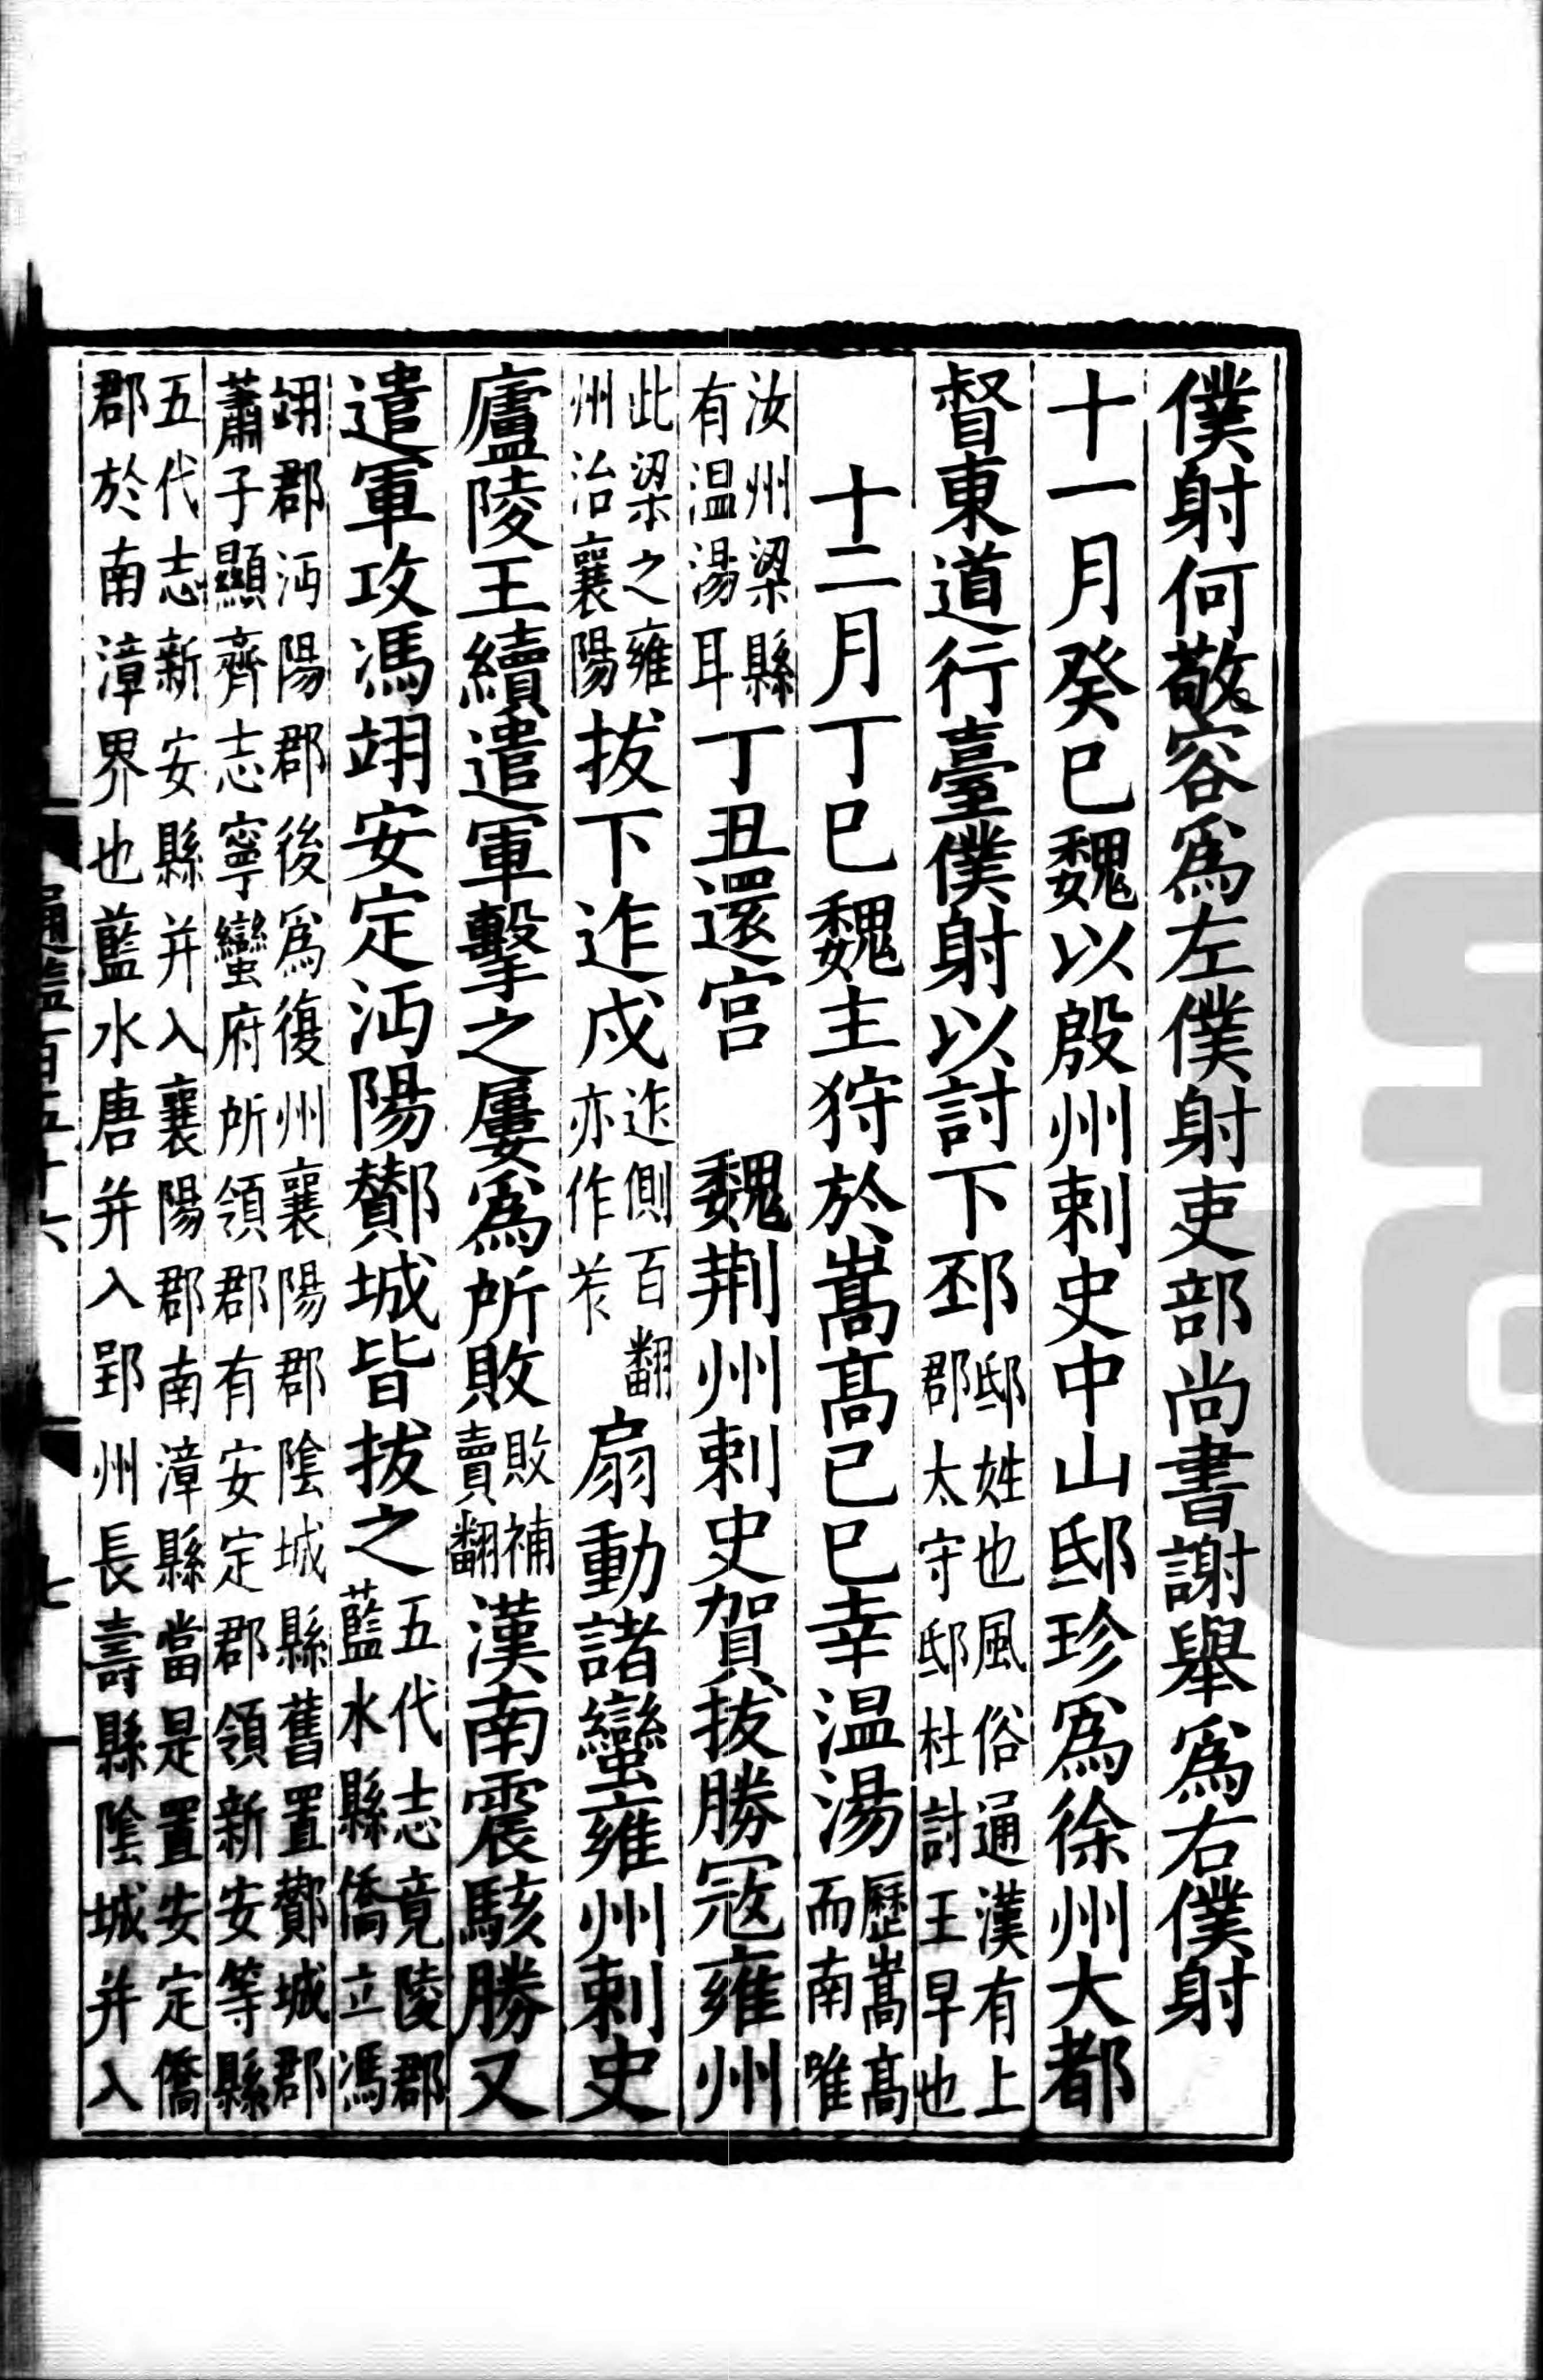 僕射何敬容爲左僕射吏部尚書謝舉爲右僕射
十一月癸巳魏以殷州刺史中山邸珍爲徐州大都
督東道行臺僕射以討下邳邸姓也風俗通漢有上郡太守邸杜討王早也
十二月丁巳魏主狩於嵩高己巳幸温湯歷嵩高而南唯
汝州梁縣有温湯耳丁丑還宫　魏荆州刺史賀拔勝寇雍州
此梁之雍州治襄陽拔下迮戍迮側百翻亦作笮扇動諸蠻雍州刺史
廬陵王續遣軍擊之屢爲所敗敗補賣翻漢南震駭勝又
遣軍攻馮翊安定沔陽酇城皆拔之五代志竟陵郡藍水縣僑立馮
翊郡沔陽郡後爲復州襄陽郡陰城縣舊置酇城郡蕭子顯齊志寧蠻府所領郡有安定郡領新安等縣
五代志新安縣并入襄陽郡南漳縣當是置安定僑郡於南漳界也藍水唐并入郢州長壽縣陰城并入
通鑑一百五十六
七